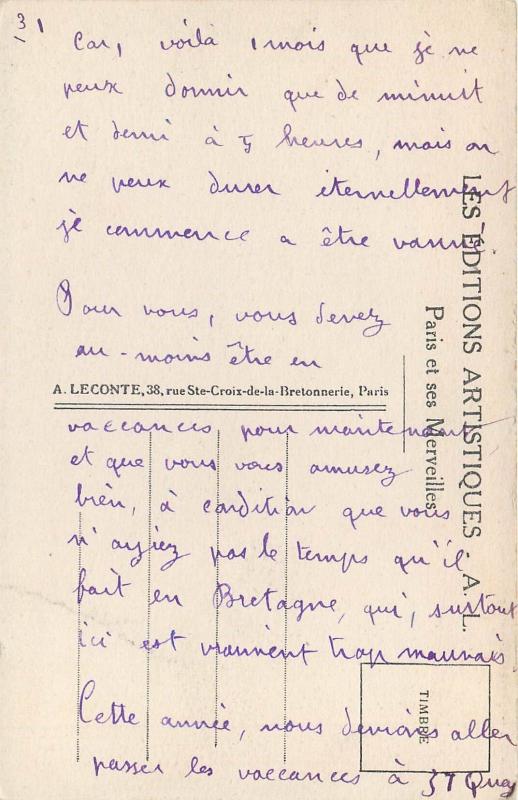 3)
Car, voilà 1 mois que je ne
peux dormir que de minuit
et demi à 5 heures, mais on
ne peux durer éternellement
je commence a être vanné
Pour vous, vous devez
au-moins être en
A. LECONTE, 38, rue Ste-Croix-de-la-Bretonnerie, Paris
vaccances pour maintenant
et que vous vous amusez
bien, à condition que vous
n'ayiez pas le temps qu'il
fait en Bretagne, qui, surtout
ici est vraiment trop mauvais
Cette année, nous devions aller
passer les vaccances à ST Quay
LES ÉDITIONS ARTISTIQUES - A. L.
Paris et ses Merveilles
TIMBRE